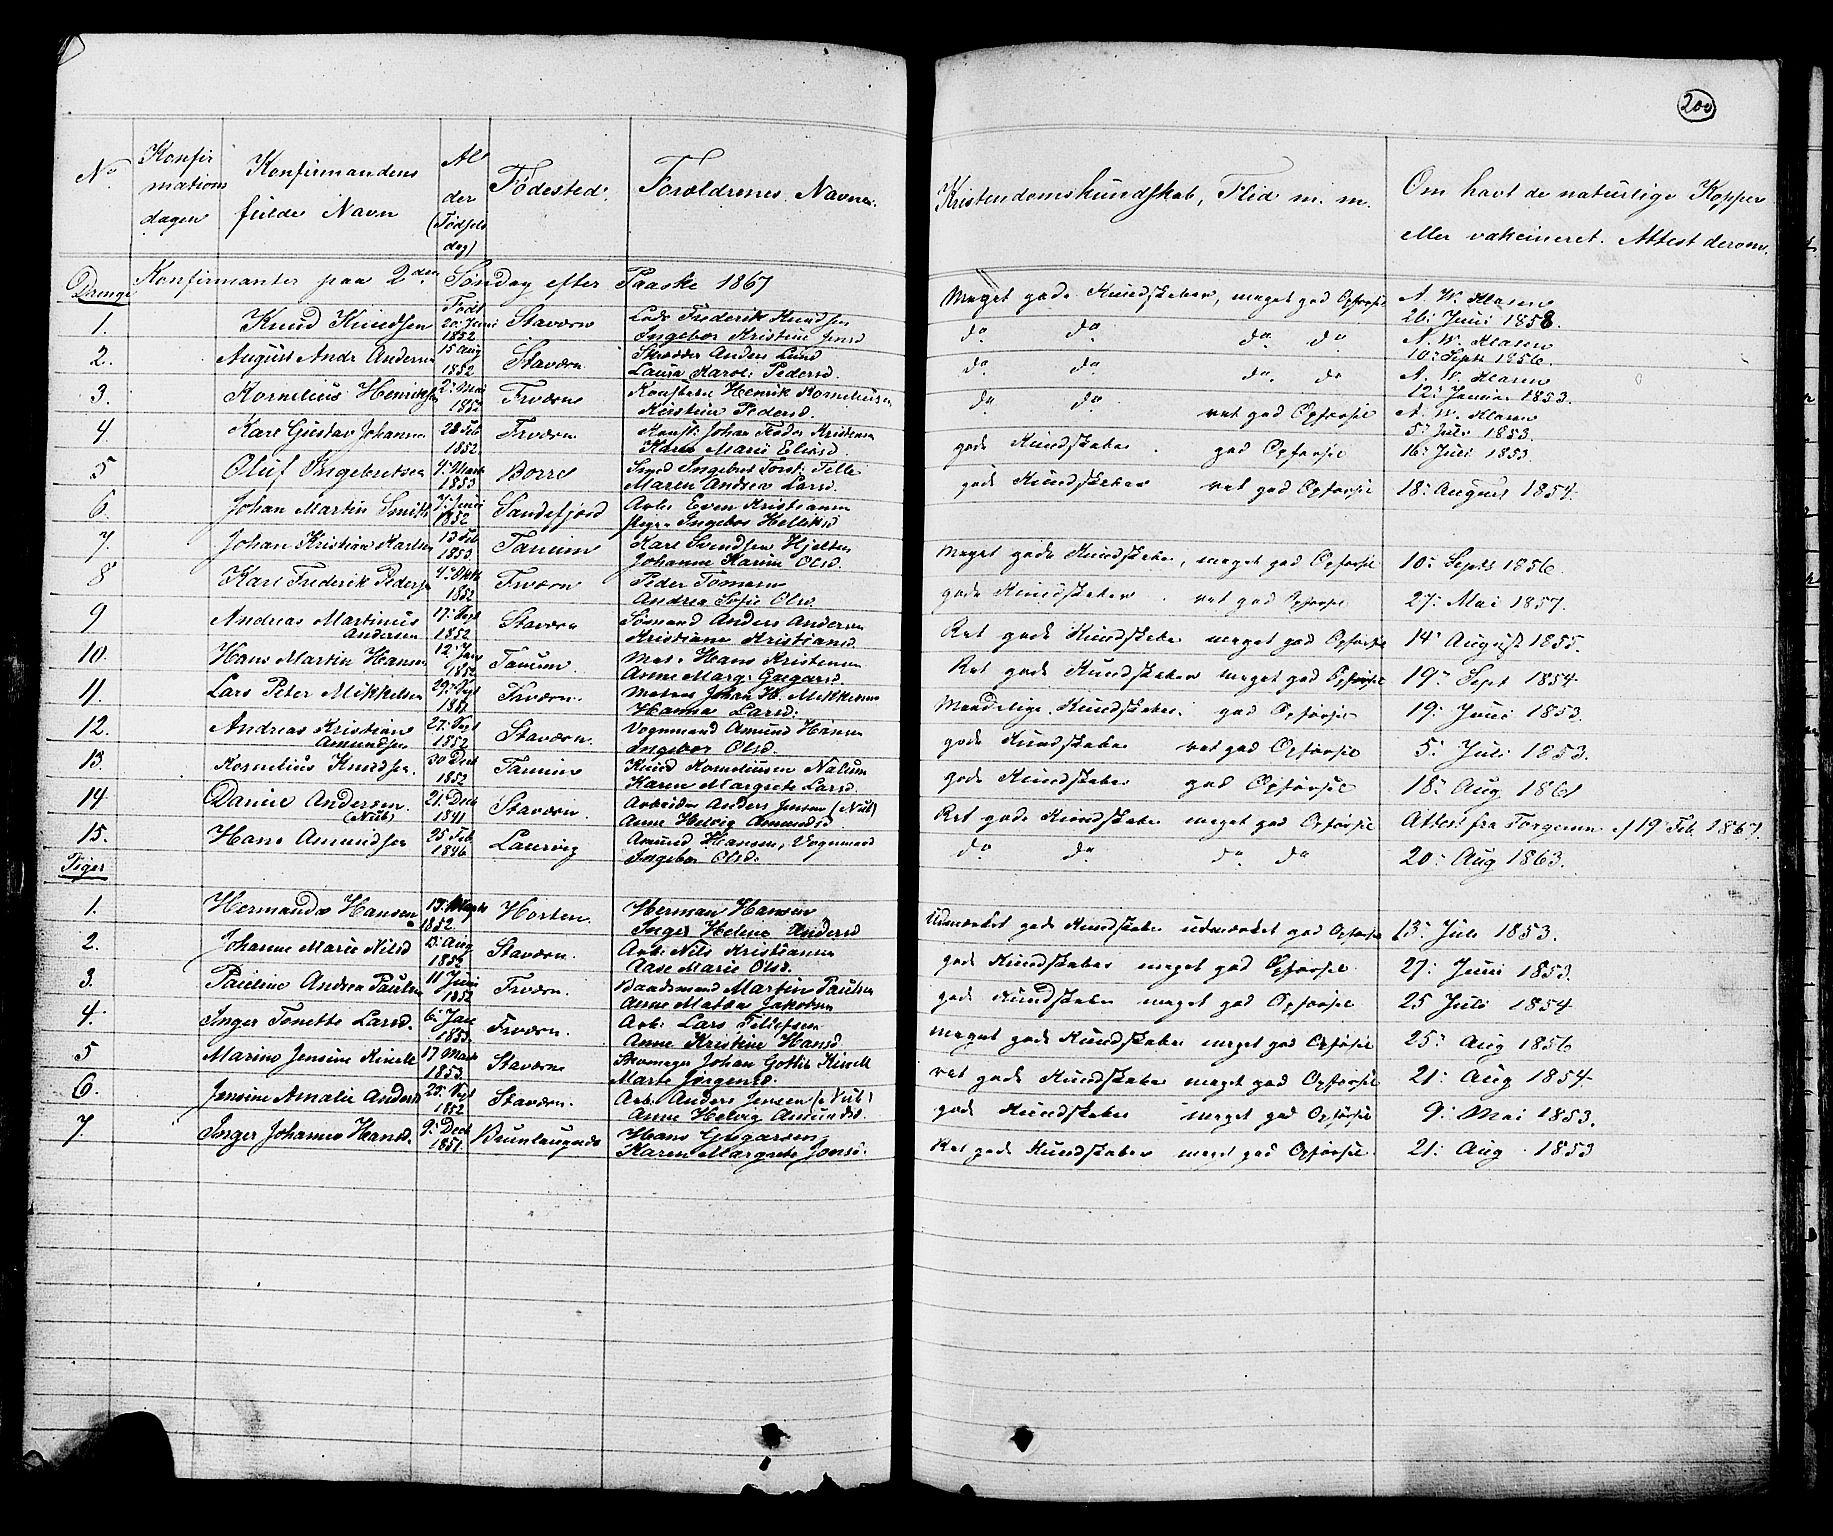 200
No Konfirmations dagen Konfirmandens fulde Navn Alder (Fødsels dag) Fødested: Forældrenes Navne. Kristendomskundskab, Flid m. m. Om havt de naturlige Kopper eller vakcineret. Attest derom.
Konfirmanter paa 2den Søndag efter Paaske 1867
Drenge
1. Knud Knudsen Født 20 Juni 1852 Staværn Lods Frederik Knudsen Ingebor Kristine Jensd Meget gode Kundskaber, meget god Opførsel A. W. Klasen 26: Juni 1858.
2. August Andr Andersen 15 Aug 1852 Staværn Skrædder Anders Lund Laura Karol: Pedersd. do do do do A. W. Klasen 10: Sept 1856.
3. Kornelius Henriksen 2: Mai 1852 Frværn Konstbern Henrik Korneliusen Kristine Pedersd. do do do do A. W. Klasen 12: Januar 1853.
4 Karl Gustav Johansen 28 Feb 1852 Frværn Konst: Johan Fredr Kristensen Karen Marie Eliasd do do ret god Opførsel A. W. Klasen 5: Juli 1853.
5 Oluf Ingebretsen 4: Marts 1853 Borre Smed Ingebret Torst: Telle Maren Andrea Larsd. gode Kundskaber. god Opførsel 16: Juli 1853
6 Johan Martin Smith 7: Juni 1852 Sandefjord Arb: Even Kristiansen Ingebor Helliksd gode Kundskaber ret god Opførsel 18: August 1854.
7. Johan Kristian Karlsen 13 Feb 1853 Tanum Karl Svendsen Hjelten Johanne Karine Olsd. Meget gode Kundskaber, meget god Opførsel 10: Septb 1856.
8 Karl Frederik Pedersen 4: Okt 1852 Frværn Peder Tomesen Andrea Sofie Olsd. gode Kundskaber. ret god Opførsel 27: Mai 1857.
9 Andreas Martinus Andersen 17: Sept 1852 Staværn Sømand Anders Andersen Kristiane Kristiansd. Ret gode Kundskaber meget god Opførsel 14: August 1855.
10. Hans Martin Hansen 12: Jan 1852 Tanum Mat: Hans Kristensen Anne Marg: Gregarsd. Ret gode Kundskaber meget god Opførsel 19: Sept 1854
11. Lars Peter Mikkelsen 29: Sept 1851 Frværn. Matros Johan H. Mikkelsen Hanna Larsd: Maadelige Kundskaber. god Opførsel 19: Juni 1853.
12. Andreas Kristian Amundsen 27: Sept 1852 Staværn. Vognmand Amund Hansen Ingebor Olsd. gode Kundskaber ret god Opførsel 5: Juli 1853.
13. Kornelius Knudsen. 30 Decb 1852 Tanum Knud Korneliusen Nalum Karen Margrete Larsd. gode Kundskaber god Opførsel 18: Aug 1861
14 Danine Andersen. (Nub) 21: Decb 1841 Staværn Arbeider Anders Jensen (Nub) Anne Helvig Amundsd. Ret gode Kundskaber meget god Opførsel Attest fra Torgersen af 19: Feb: 1867.
15. Hans Amundsen 25 Feb 1846 Laurvig Amund Hansen, Vognmand Ingebor Olsd: do do do do 20: Aug 1863.
Piger
1. Hermanda Hansen 13: Marts 1852 Horten. Herman Hansen Inger Helene Andersd Udmærket gode Kundskaber udmærket god Opførsel 13: Juli 1853.
2. Johanne Marie Nilsd 13: Aug 1852 Staværn. Arb: Nils Kristiansen Aase Marie Olsd. gode Kundskaber meget god Opførsel 27: Juni 1853.
3. Pauline Andrea Paulsen 11 Juni 1852 Frværn. Baadsmand Martin Paulsen Anne Matea Jakobsen gode Kundskaber meget god Opførsel 25 Juli 1854
4. Inger Tonette Larsd. 6: Jan 1853. Frværn. Arb: Lars Tellefsen Anne Kristine Hansd. meget gode Kundskaber meget god Opførsel 25: Aug 1856
5 Marine Jensine Kinell 17 Marts 1853. Staværn Skomager Johan Gottli Kinell Marte Jørgensd. ret gode Kundskaber meget god Opførsel 21: Aug 1854
6. Jensine Amalie Andersd 25: Sept 1852 Staværn. Arb: Anders Jensen (Nub) Anne Helvig Amundsd. gode Kundskaber meget god Opførsel 9: Mai 1853.
7. Inger Johanne Hansd. 9: Decb 1851 Brunlaugnæs Hans Gregarsen Karen Margrete Jonsd. Ret gode Kundskaber meget god Opførsel. 21: Aug. 1853